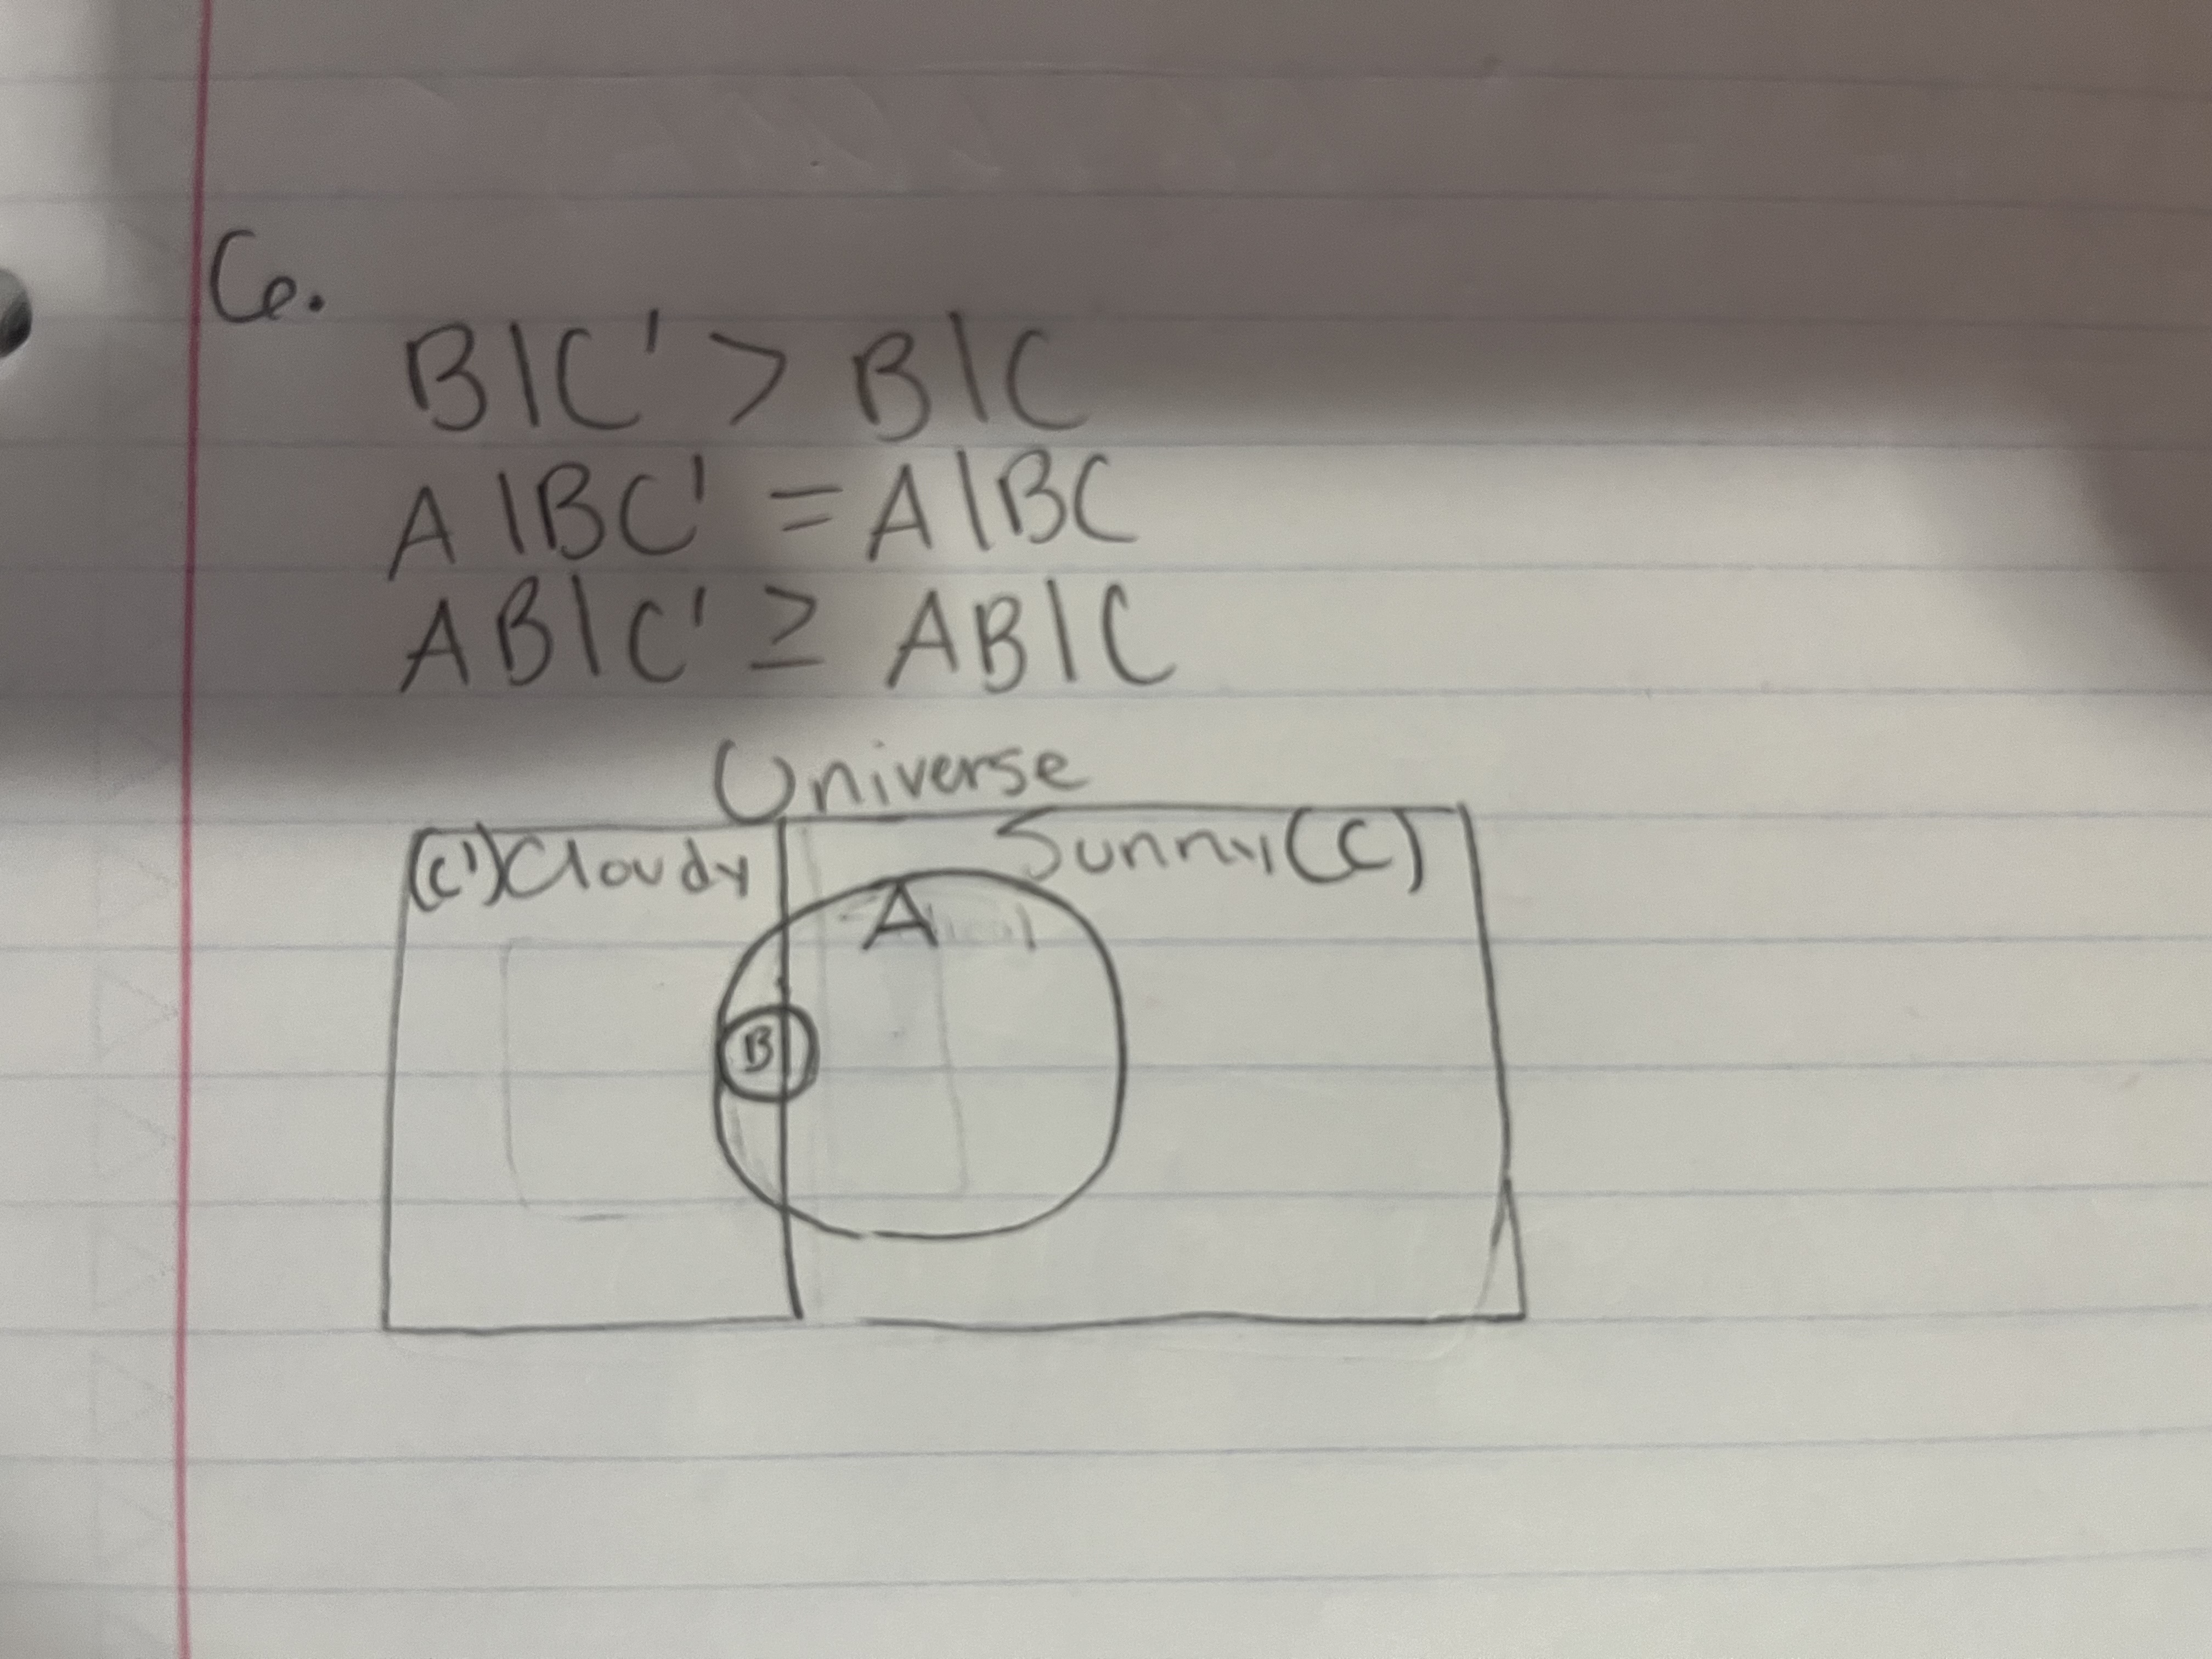 6.
B|C' > B|C
A|BC' = A|BC
AB|C' ≥ AB|C
Universe
(C') Cloudy
Sunny (C)
A
B